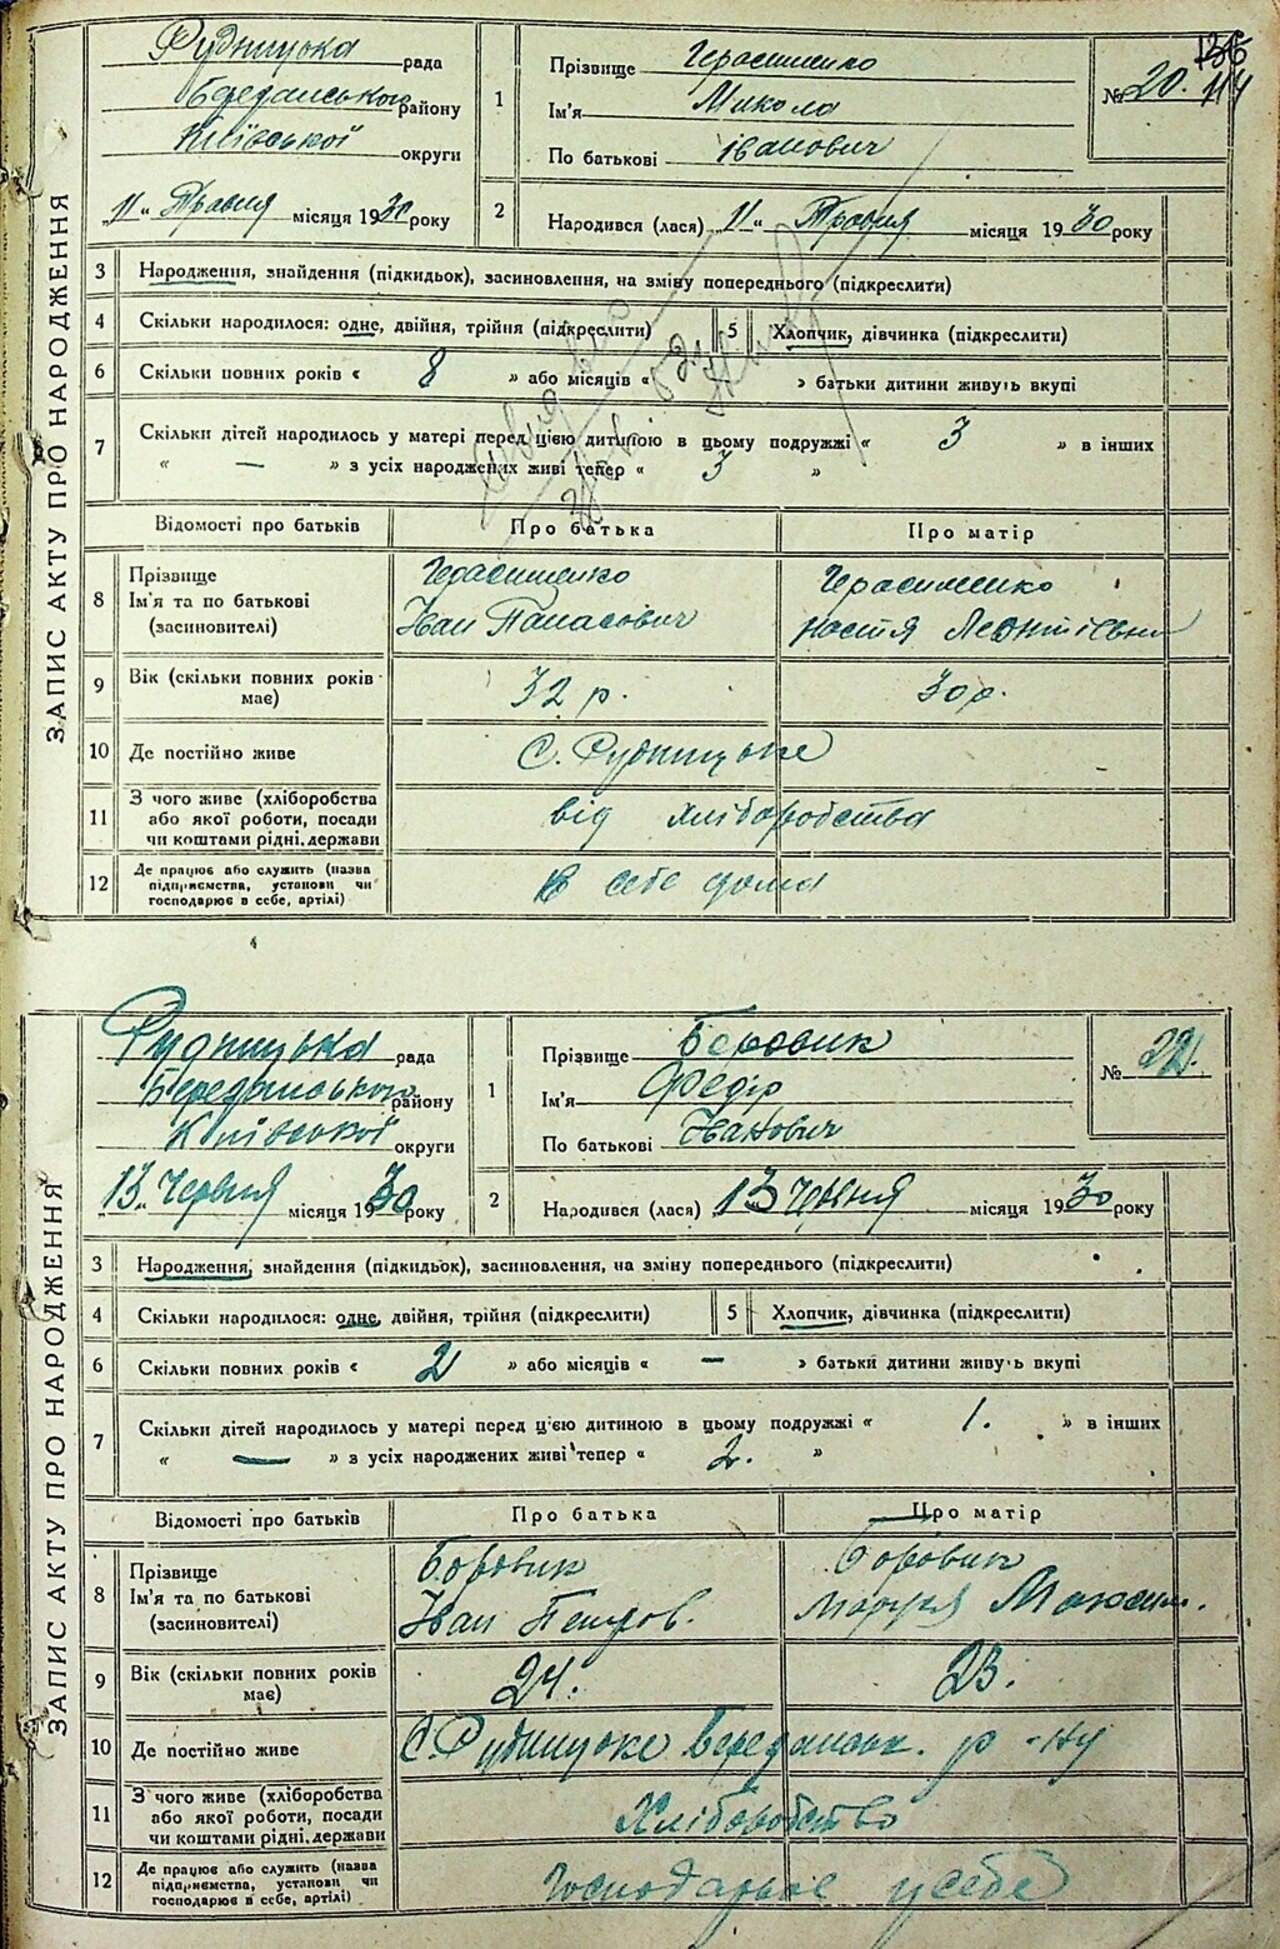 136
114
ЗАПИС АКТУ ПРО НАРОДЖЕННЯ
Рудницька рада
Береданського району
Київської округи
„11“ Травня місяця 1930 року
1 Прізвище Герасименко
Ім'я Микола
По батькові Іванович
№ 20.
2 Народився (лася) „11“ Травня місяця 1930 року
3 Народження, знайдення (підкидьок), засиновлення, на зміну попереднього (підкреслити)
4 Скільки народилося: одне, двійня, трійня (підкреслити) 5 Хлопчик, дівчинка (підкреслити)
6 Скільки повних років « 8 » або місяців « » батьки дитини живуть вкупі
7 Скільки дітей народилось у матері перед цією дитиною в цьому подружжі « 3 » в інших
« — » з усіх народжених живі тепер « 3 »
Відомості про батьків Про батька Про матір
8 Прізвище
Ім'я та по батькові
(засиновителі)
Герасименко
Іван Панасович
Герасименко
Настя Леонтіївна
9 Вік (скільки повних років має) 32 р. 30 р.
10 Де постійно живе С. Рудницьке
11 З чого живе (хліборобства
або якої роботи, посади
чи коштами рідні, держави
від хліборобства
12 Де працює або служить (назва
підприємства, установи чи
господарює в себе, артілі)
В себе дома
ЗАПИС АКТУ ПРО НАРОДЖЕННЯ
Рудницька рада
Береданського району
Київської округи
„13“ Червня місяця 1930 року
1 Прізвище Боровик
Ім'я Федір
По батькові Іванович
№ 22.
2 Народився (лася) „13 Червня місяця 1930 року
3 Народження, знайдення (підкидьок), засиновлення, на зміну попереднього (підкреслити)
4 Скільки народилося: одне, двійня, трійня (підкреслити) 5 Хлопчик, дівчинка (підкреслити)
6 Скільки повних років « 2 » або місяців « — » батьки дитини живуть вкупі
7 Скільки дітей народилось у матері перед цією дитиною в цьому подружжі « 1. » в інших
« — » з усіх народжених живі тепер « 2. »
Відомості про батьків Про батька Про матір
8 Прізвище
Ім'я та по батькові
(засиновителі)
Боровик
Іван Петров.
Боровик
Маруся Максим.
9 Вік (скільки повних років має) 24. 23.
10 Де постійно живе С. Рудницьке Береданськ. р-ну
11 З чого живе (хліборобства
або якої роботи, посади
чи коштами рідні, держави
Хліборобство
12 Де працює або служить (назва
підприємства, установи чи
господарює в себе, артілі)
Господарює у себе